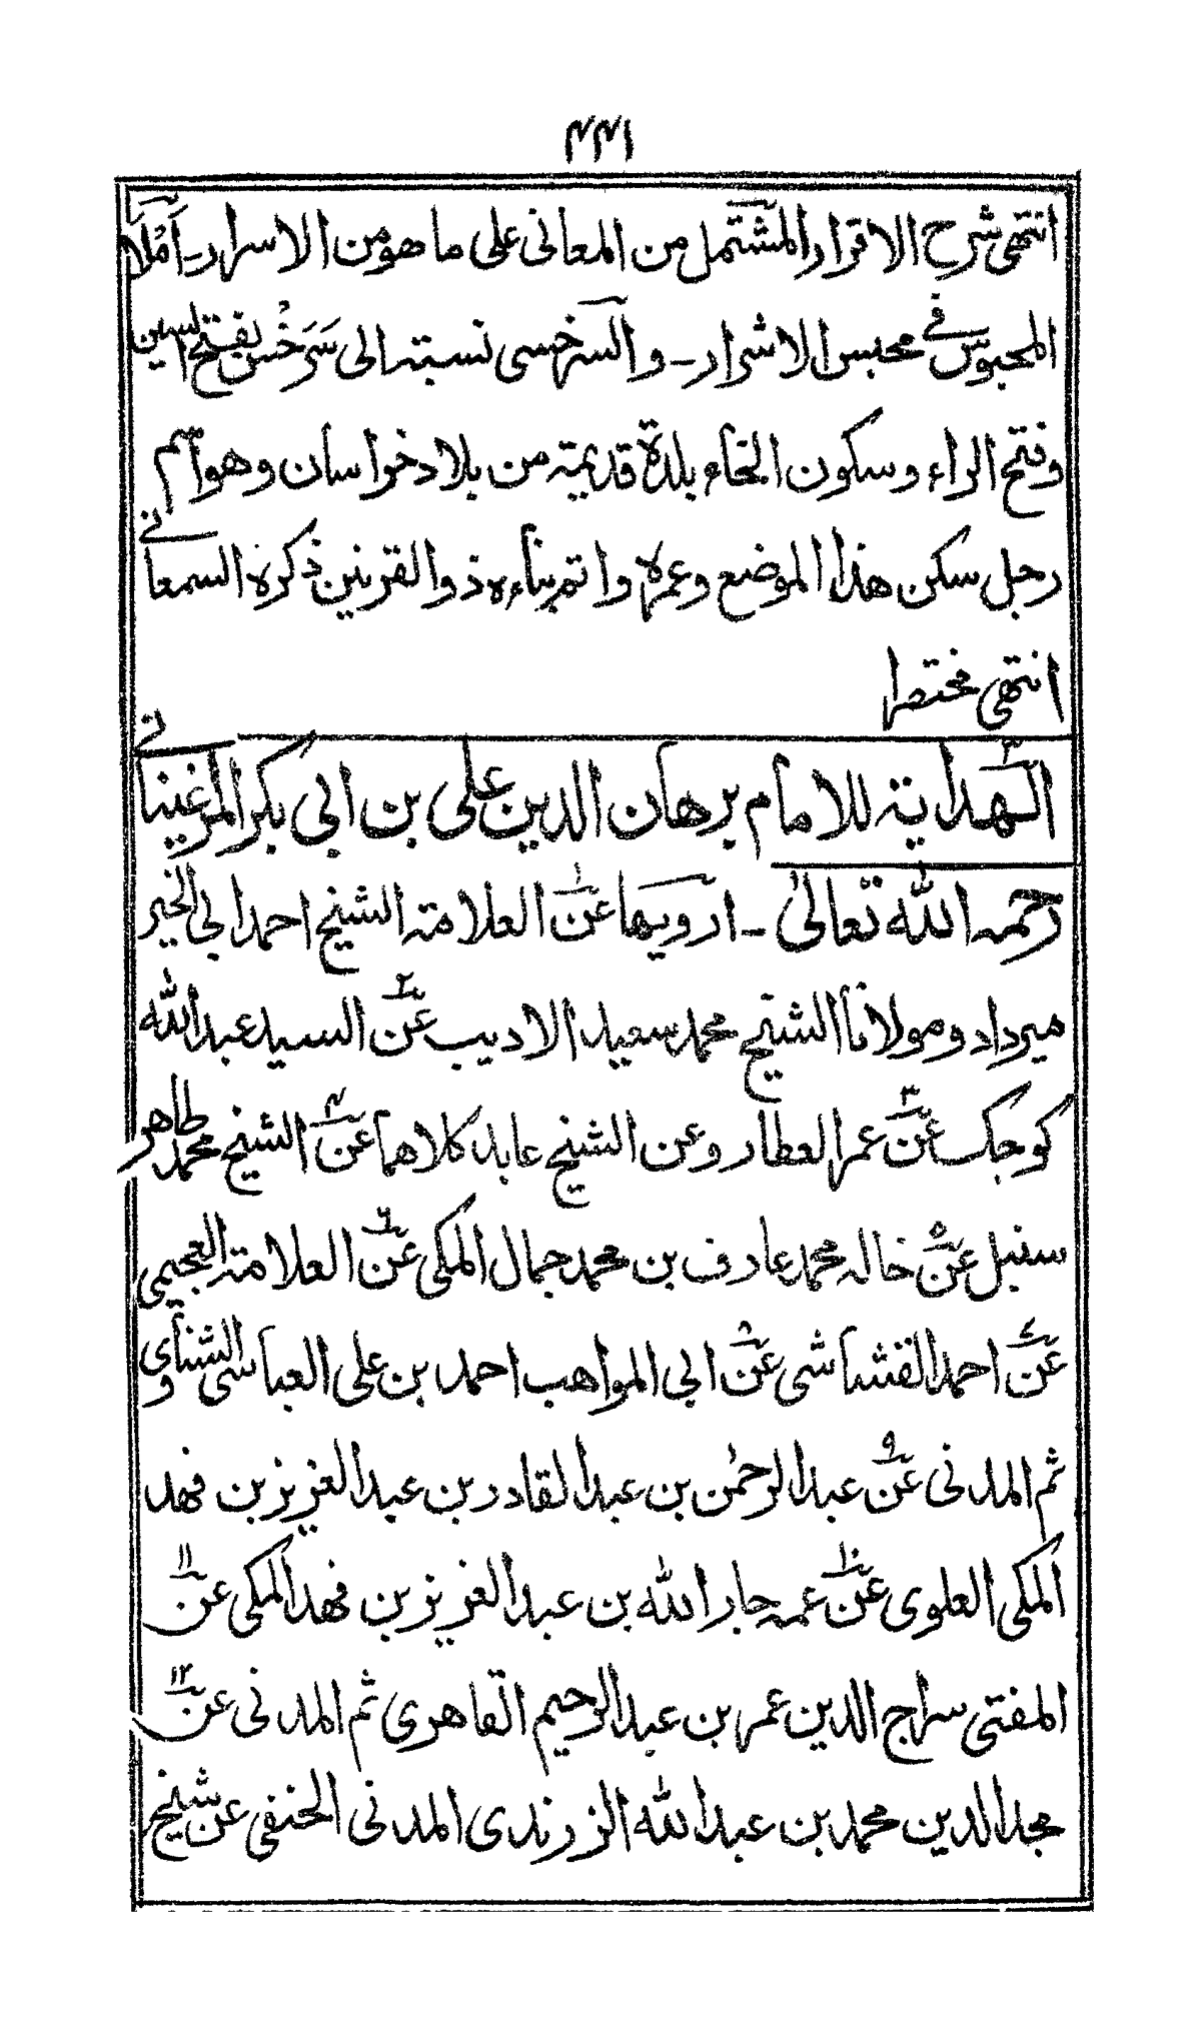 ٤٤١
انتهى شرح الاقرار المشتمل من المعانى على ما هو من الاسرار ـ أَمْلَاَ
المحبوس في محبس الاشرار ـ والسرخسى نسبته الى سَرَخْس بفتح السين
وفتح الراء وسكون الخاء بلدة قديمة من بلاد خراسان وهو اسم
رجل سكن هذا الموضع وعمره واتم بناءه ذو القرنين ذكره السمعانى
انتهى مختصرا
الهداية للامام برهان الدين على بن ابى بكر المرغينانى
رحمه الله تعالىٰ ـ ارويها عن١ العلامة الشيخ احمد ابى الخير
ميرداد ومولانا الشيخ محمد سعيد الاديب عن٢ السيد عبد الله
كوجك عن٣ عمر العطار وعن الشيخ عابد كلاهما عن٤ الشيخ محمد طاهر
سنبل عن٥ خاله محمد عارف بن محمد جمال المكى عن٦ العلامة العجيمى
عن٧ احمد القشاشى عن٨ ابى المواهب احمد بن على العباسى الشناوى
ثم المدنى عن٩ عبد الرحمٰن بن عبد القادر بن عبد العزيز بن فهد
المكى العلوى عن١٠ عمه جار الله بن عبد العزيز بن فهد المكى عن١١
المفتى سراج الدين عمر بن عبد الرحيم القاهرى ثم المدنى عن١٢
مجد الدين محمد بن عبد الله الزرندى المدنى الحنفى عن شيخ